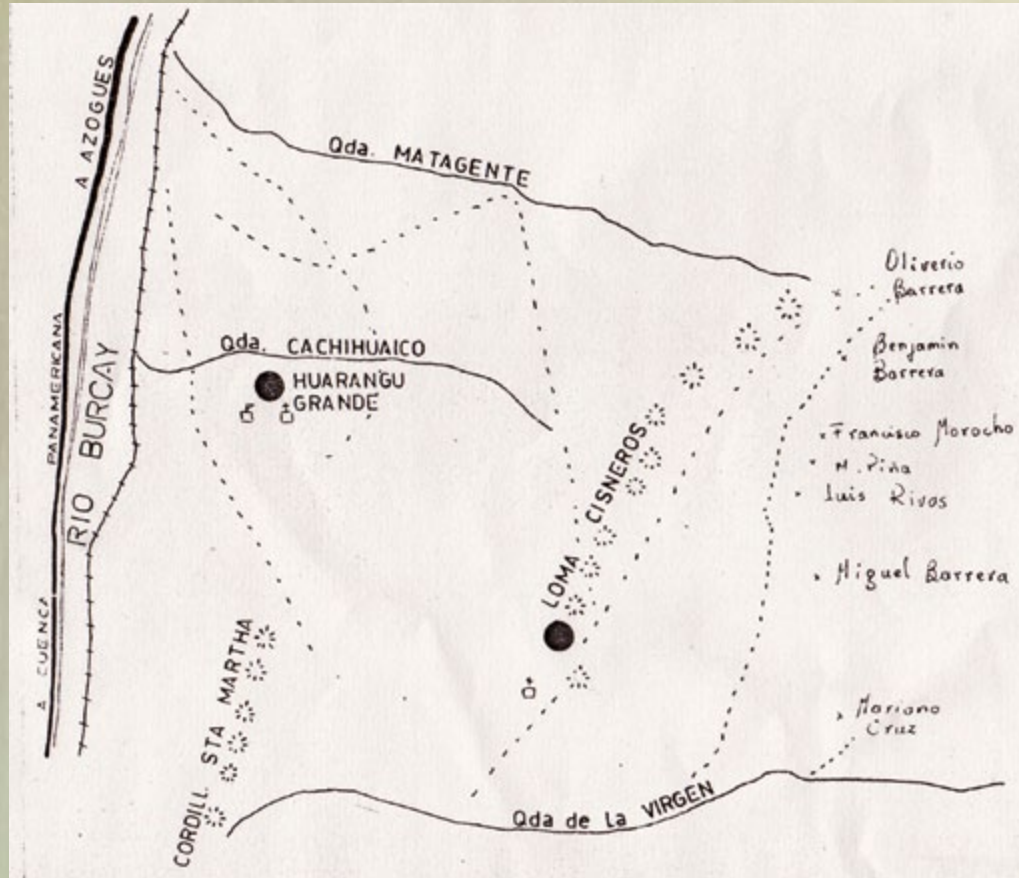 A AZOGUES
PANAMERICANA
A CUENCA
RIO BURCAY
Qda. MATAGENTE
Qda. CACHIHUAICO
HUARANGU
GRANDE
LOMA CISNEROS
CORDILL. STA MARTHA
Qda de La VIRGEN
Oliverio
Barrera
Benjamin
Barrera
Francisco Morocho
N. Piña
Luis Rivas
Miguel Barrera
Mariano
Cruz